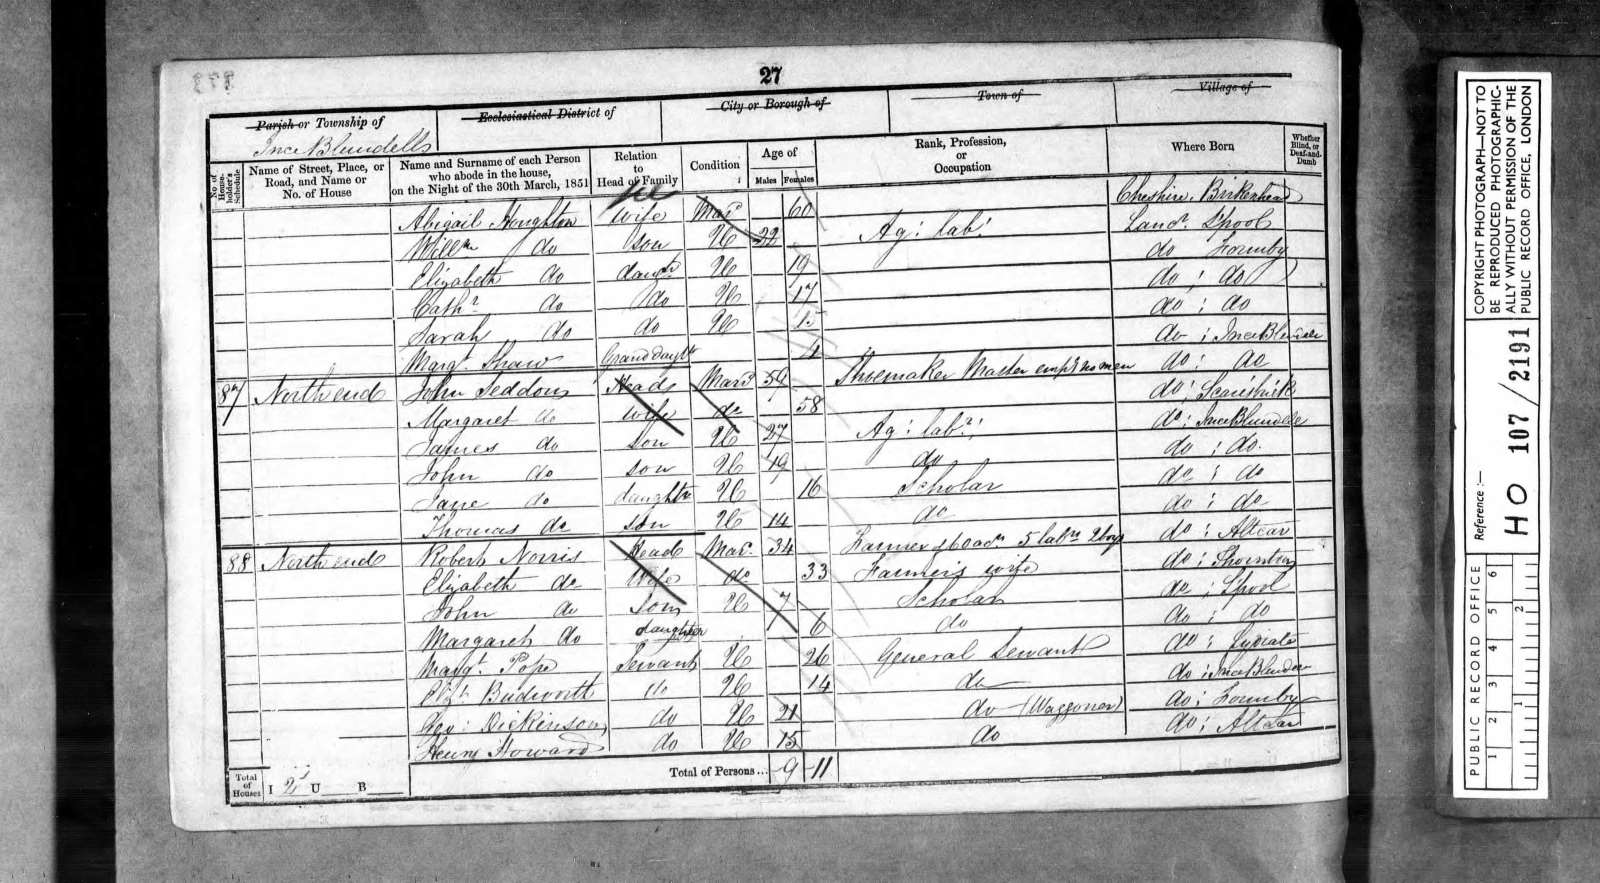 27
Parish or Township of
Ince Blundells
Ecclesiastical District of
City or Borough of
Town of
Village of
No of House-holder's Schedule
Name of Street, Place, or Road, and Name or No. of House
Name and Surname of each Person who abode in the house, on the Night of the 30th March, 1851
Relation to Head of Family
Condition
Age of
Males
Females
Rank, Profession, or Occupation
Where Born
Whether Blind, or Deaf-and-Dumb
Abigail Houghton Wife Mar. 60 Cheshire, Birkenhead
Willm do son U 22 Ag: lab: Lancr. L'pool
Elizabeth do daugtr U 19 do Formby
Cathr. do do U 17 do ; do
Sarah do do U 15 do ; do
Margt. Shaw Granddaughtr 4 do ; Ince Blundell
87 North end John Seddon Head Mard 59 Shoemaker Master emp. no men do ; do
Margaret do wife do 58 do ; Scarisbrick
James do Son U 27 Ag: labr: do ; Ince Blundell
John do son U 19 do do ; do.
Jane do daughtr U 16 Scholar do ; do
Thomas do son U 14 do do ; do
88 North end Robert Norris Head Mar. 34 Farmer of 60 acrs. 5 labrs 2 boys do ; Altcar
Elizabeth do Wife do 33 Farmer's wife do ; Thornton
John do Son U 7 Scholar do ; L'pool
Margaret do daughter 6 do do ; do
Margt. Pope Servant U 26 General Servant do ; Lydiate
Elizh. Budworth do U 14 do do ; Ince Blundell
Geo: Dickinson do U 21 do (Waggoner) do ; Formby
Henry Howard do U 15 do do ; Altcar
Total of Houses I 2 U B
Total of Persons... 9 11
COPYRIGHT PHOTOGRAPH—NOT TO BE REPRODUCED PHOTOGRAPHIC-ALLY WITHOUT PERMISSION OF THE PUBLIC RECORD OFFICE, LONDON
Reference :—
HO 107/2191
PUBLIC RECORD OFFICE
1 2 3 4 5 6
1 2